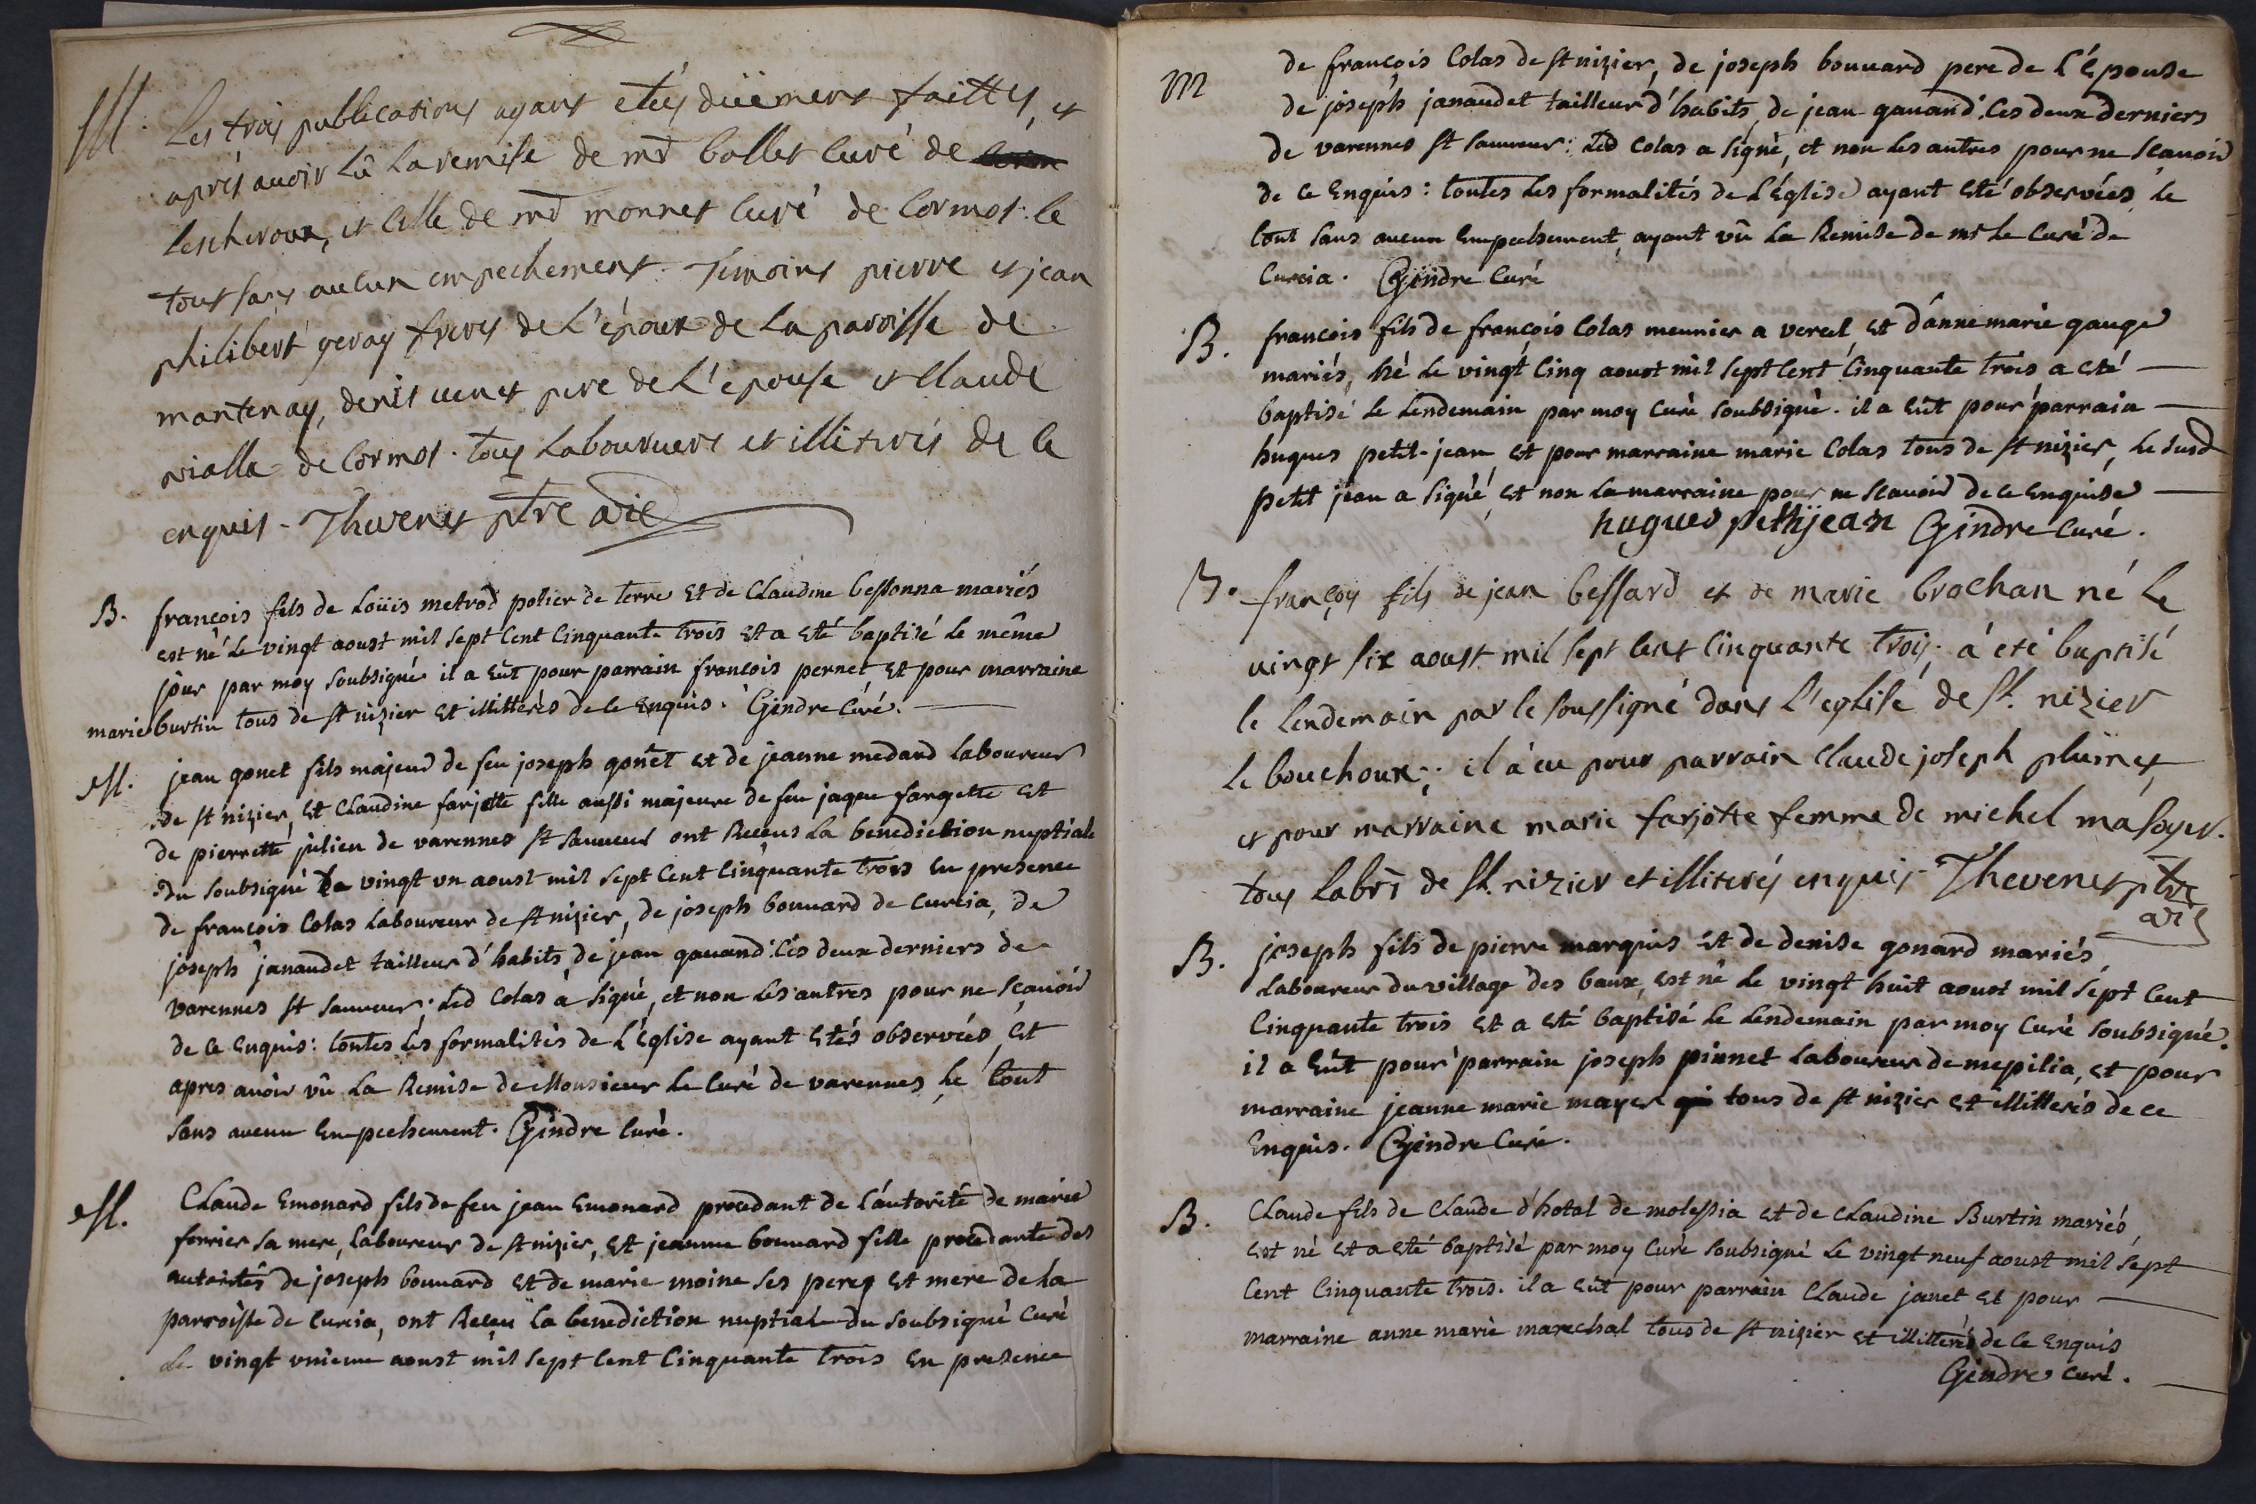 M. Les trois publications ayant etéy düement faittes, et
aprés avoir lû la remise de mr ballet curé de
lescheroux, et celle de mr monnet curé de cormos. le
tout sans aucun empechement. Témoins pierre et jean
philibert geray freres de l'époux de la paroisse de
mantenay, denis uenet pere de l'epouse et claude
vialla de cormos. tous laboureurs et illiterés de ce
enquis - Thevenet ptre vic
B. françois fils de loüis metrod potier de terre et de claudine bessonna mariés
est né le vingt aoust mil sept cent cinquante trois et a eté baptisé le même
jour par moy soubsigné il a eût pour parrain françois pernet, et pour marraine
marie burtin tous de st nizier et illitterés de ce enquis. Gindre curé.
M. jean gonet fils majeur de feu joseph gonet et de jeanne medard laboureur
de st nizier, et claudine farjotte fille aussi majeure de feu jaque fargette et
de pierrette julien de varennes st sauveur ont receus la benediction nuptiale
du soubsigné le vingt un aoust mil sept cent cinquante trois en presence
de françois colas laboureur de st nizier, de joseph bouuard de curcia, de
joseph janaudet tailleur d'habits, de jean gauand. ces deux derniers de
varennes st sauveur; led colas a signé, et non les autres pour ne sçauoir
de ce enquis: toutes les formalités de l'église ayant etés observées, et
apres auoir vû la remise de Monsieur le curé de varennes, le tout
sans aucun empechement. Gindre curé.
M. Claude Emonard fils de feu jean Emonard procedant de l'autorité de marie
ferrier sa mere, laboureur de st nizier, et jeanne bouuard fille procedante des
autorités de joseph bouuard et de marie moine ses pere et mere de la
parroisse de curcia, ont receu la benediction nuptiale du soubsigné curé
le vingt unieme aoust mil sept cent cinquante trois en presence
M de françois colas de st nizier, de joseph bouuard pere de l'épouse
de joseph janaudet tailleur d'habits, de jean gauand. ces deux derniers
de varennes st sauveur: led colas a signé, et non les autres pour ne scauoir
de ce enquis: toutes les formalités de l'église ayant eté observées, le
tout sans aucun empechement, ayant vû la remise de mr le curé de
curcia. Gindre curé
B. françois fils de françois colas meunier a vereil et d'anne marie gauge
mariés, né le vingt cinq aoust mil sept cent cinquante trois a eté
baptisé le lendemain par moy curé soubsigné. il a eût pour parrain
hugues petit-jean et pour marraine marie colas tous de st nizier, le susd
petit jean a signé, et non la marraine pour ne scauoir de ce enquise
hugues petitjean Gindre curé.
B. françoy fils de jean bessard et de marie brochan né le
uingt six aoust mil sept cent cinquante trois. á eté baptisé
le lendemain par le soussigné dans l'eglise de st. nizier
le bouchoux; il á eu pour parrain claude joseph pluinet
et pour marraine marie farjotte femme de michel masoyer.
tous labrs de st. nizier et illiterés enquis - Thevenet ptre
vic
B. joseph fils de pierre marquis et de denise gonard mariés,
laboureur du village des baux, est né le vingt huit aoust mil sept cent
cinquante trois et a eté baptisé le lendemain par moy curé soubsigné.
il a eût pour parrain joseph pinnet laboureur de mepilia, et pour
marraine jeanne marie mayer tous de st nizier et illitterés de ce
enquis. Gindre curé.
B. Claude fils de claude d'hotal de molessia et de claudine Burtin mariés,
est né et a eté baptisé par moy curé soubsigné le vingt neuf aoust mil sept
cent cinquante trois. il a eût pour parrain claude janet et pour
marraine anne marie marechal tous de st nizier et illitterés de ce enquis
Gindre curé.